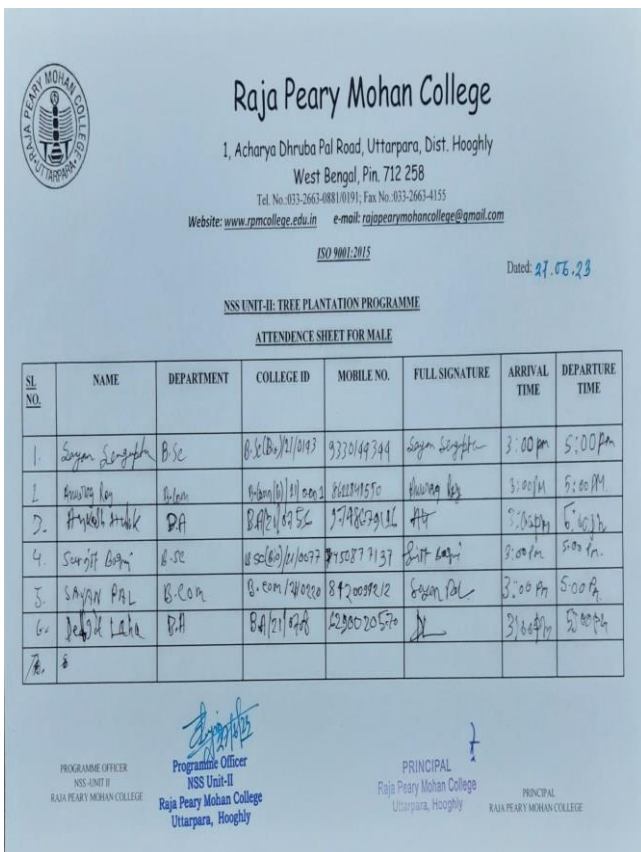 RAJA PEARY MOHAN COLLEGE
UTTARPARA
Raja Peary Mohan College
1, Acharya Dhruba Pal Road, Uttarpara, Dist. Hooghly
West Bengal, Pin. 712 258
Tel. No.:033-2663-0881/0191; Fax No.:033-2663-4155
Website: www.rpmcollege.edu.in e-mail: rajapearymohancollege@gmail.com
ISO 9001:2015
Dated: 27.06.23
NSS UNIT-II: TREE PLANTATION PROGRAMME
ATTENDENCE SHEET FOR MALE
SL NO. NAME DEPARTMENT COLLEGE ID MOBILE NO. FULL SIGNATURE ARRIVAL TIME DEPARTURE TIME
1. Sayan Sengupta B.Sc 9330149344 Sayan Sengupta 3:00 pm 5:00 Pm
Anurag Roy B.Com Anurag Roy 3:00 PM 5:00 PM
B.A
4. Surajit B-SC 3:00 Pm 5:00 Pm.
5. SAYAN PAL B.Com B.com/21/0220 Sayan Pal 3:00 Pm 5:00 Pm
6. Laha B.A 6290020570
PROGRAMME OFFICER
NSS -UNIT II
RAJA PEARY MOHAN COLLEGE
27/6/23
Programme Officer
NSS Unit-II
Raja Peary Mohan College
Uttarpara, Hooghly
PRINCIPAL
Raja Peary Mohan College
Uttarpara, Hooghly
PRINCIPAL
RAJA PEARY MOHAN COLLEGE